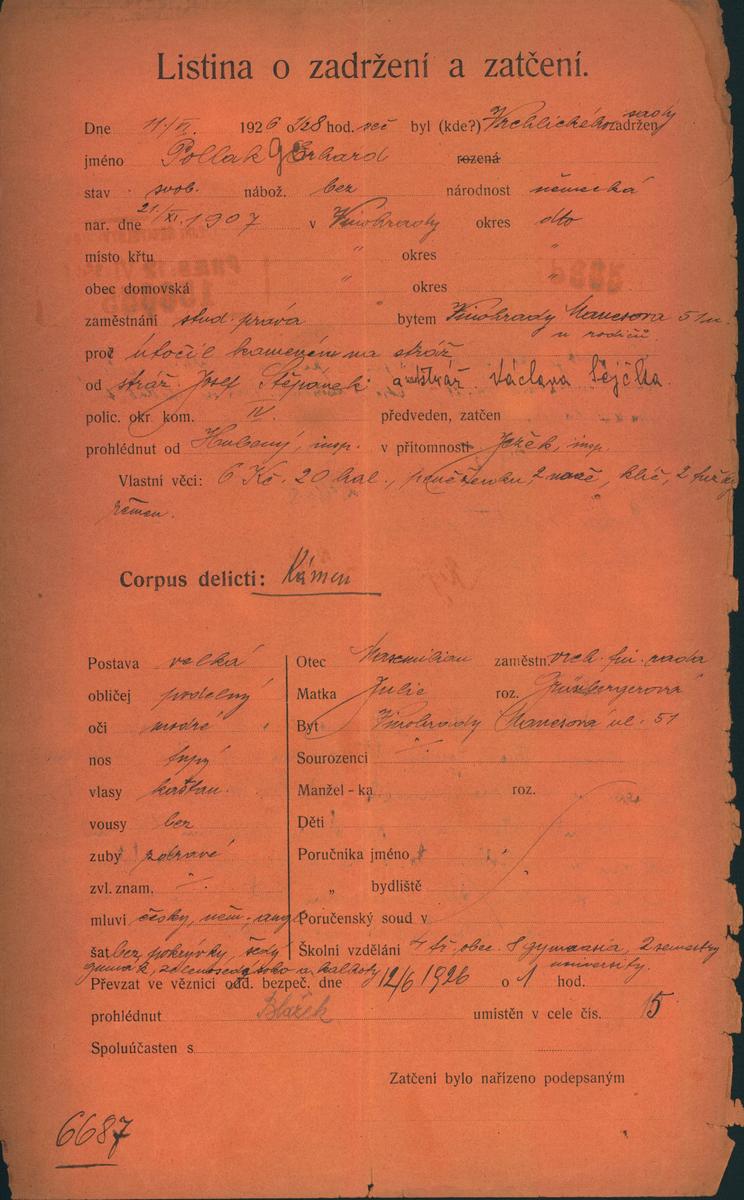 Listina o zadržení a zatčení.
Dne 11./VI. 1926 o 1/28 hod. več byl (kde?) Vrchlického sady zadržen
jméno Pollak Gerhard rozená
stav svob. nábož. bez národnost německá
nar. dne 21/XI. 1907 v Vinohrady okres dto
místo křtu " okres "
obec domovská " okres "
zaměstnání stud. práva bytem Vinohrady Manesova 51
u rodičů.
proč útočil kamením na stráž
od stráž. Josef Štěpánek a stráž. Václava
polic. okr. kom. IV. předveden, zatčen
prohlédnut od Hubený, insp. v přítomnosti Ježek, insp.
Vlastní věci: 6 Kč. 20 hal., peněženku, 2 nože, klíč, 2 tužky
řemen.
Corpus delicti: Kámen
Postava velká
obličej podelný
oči modré
nos tupý
vlasy kaštan.
vousy bez
zuby zdravé
zvl. znam. ./.
mluví česky, něm., angl.
šat bez pokrývky, šedý
gumák, zelenošedé sako a kalhoty
Otec Maxmilian zaměstn. vrch. fin. rada
Matka Julie roz. Grünbergerová
Byt Vinohrady Manesova ul. 51
Sourozenci ./.
Manžel-ka roz.
Děti
Poručníka jméno
„ bydliště
Poručenský soud v
Školní vzdělání 4 tř. obec. 8 gymnasia, 2 semestry
university.
Převzat ve věznici odd. bezpeč. dne 12/6 1926 o 1 hod.
prohlédnut Blažek umístěn v cele čís. 15
Spoluúčasten s
Zatčení bylo nařízeno podepsaným
6687